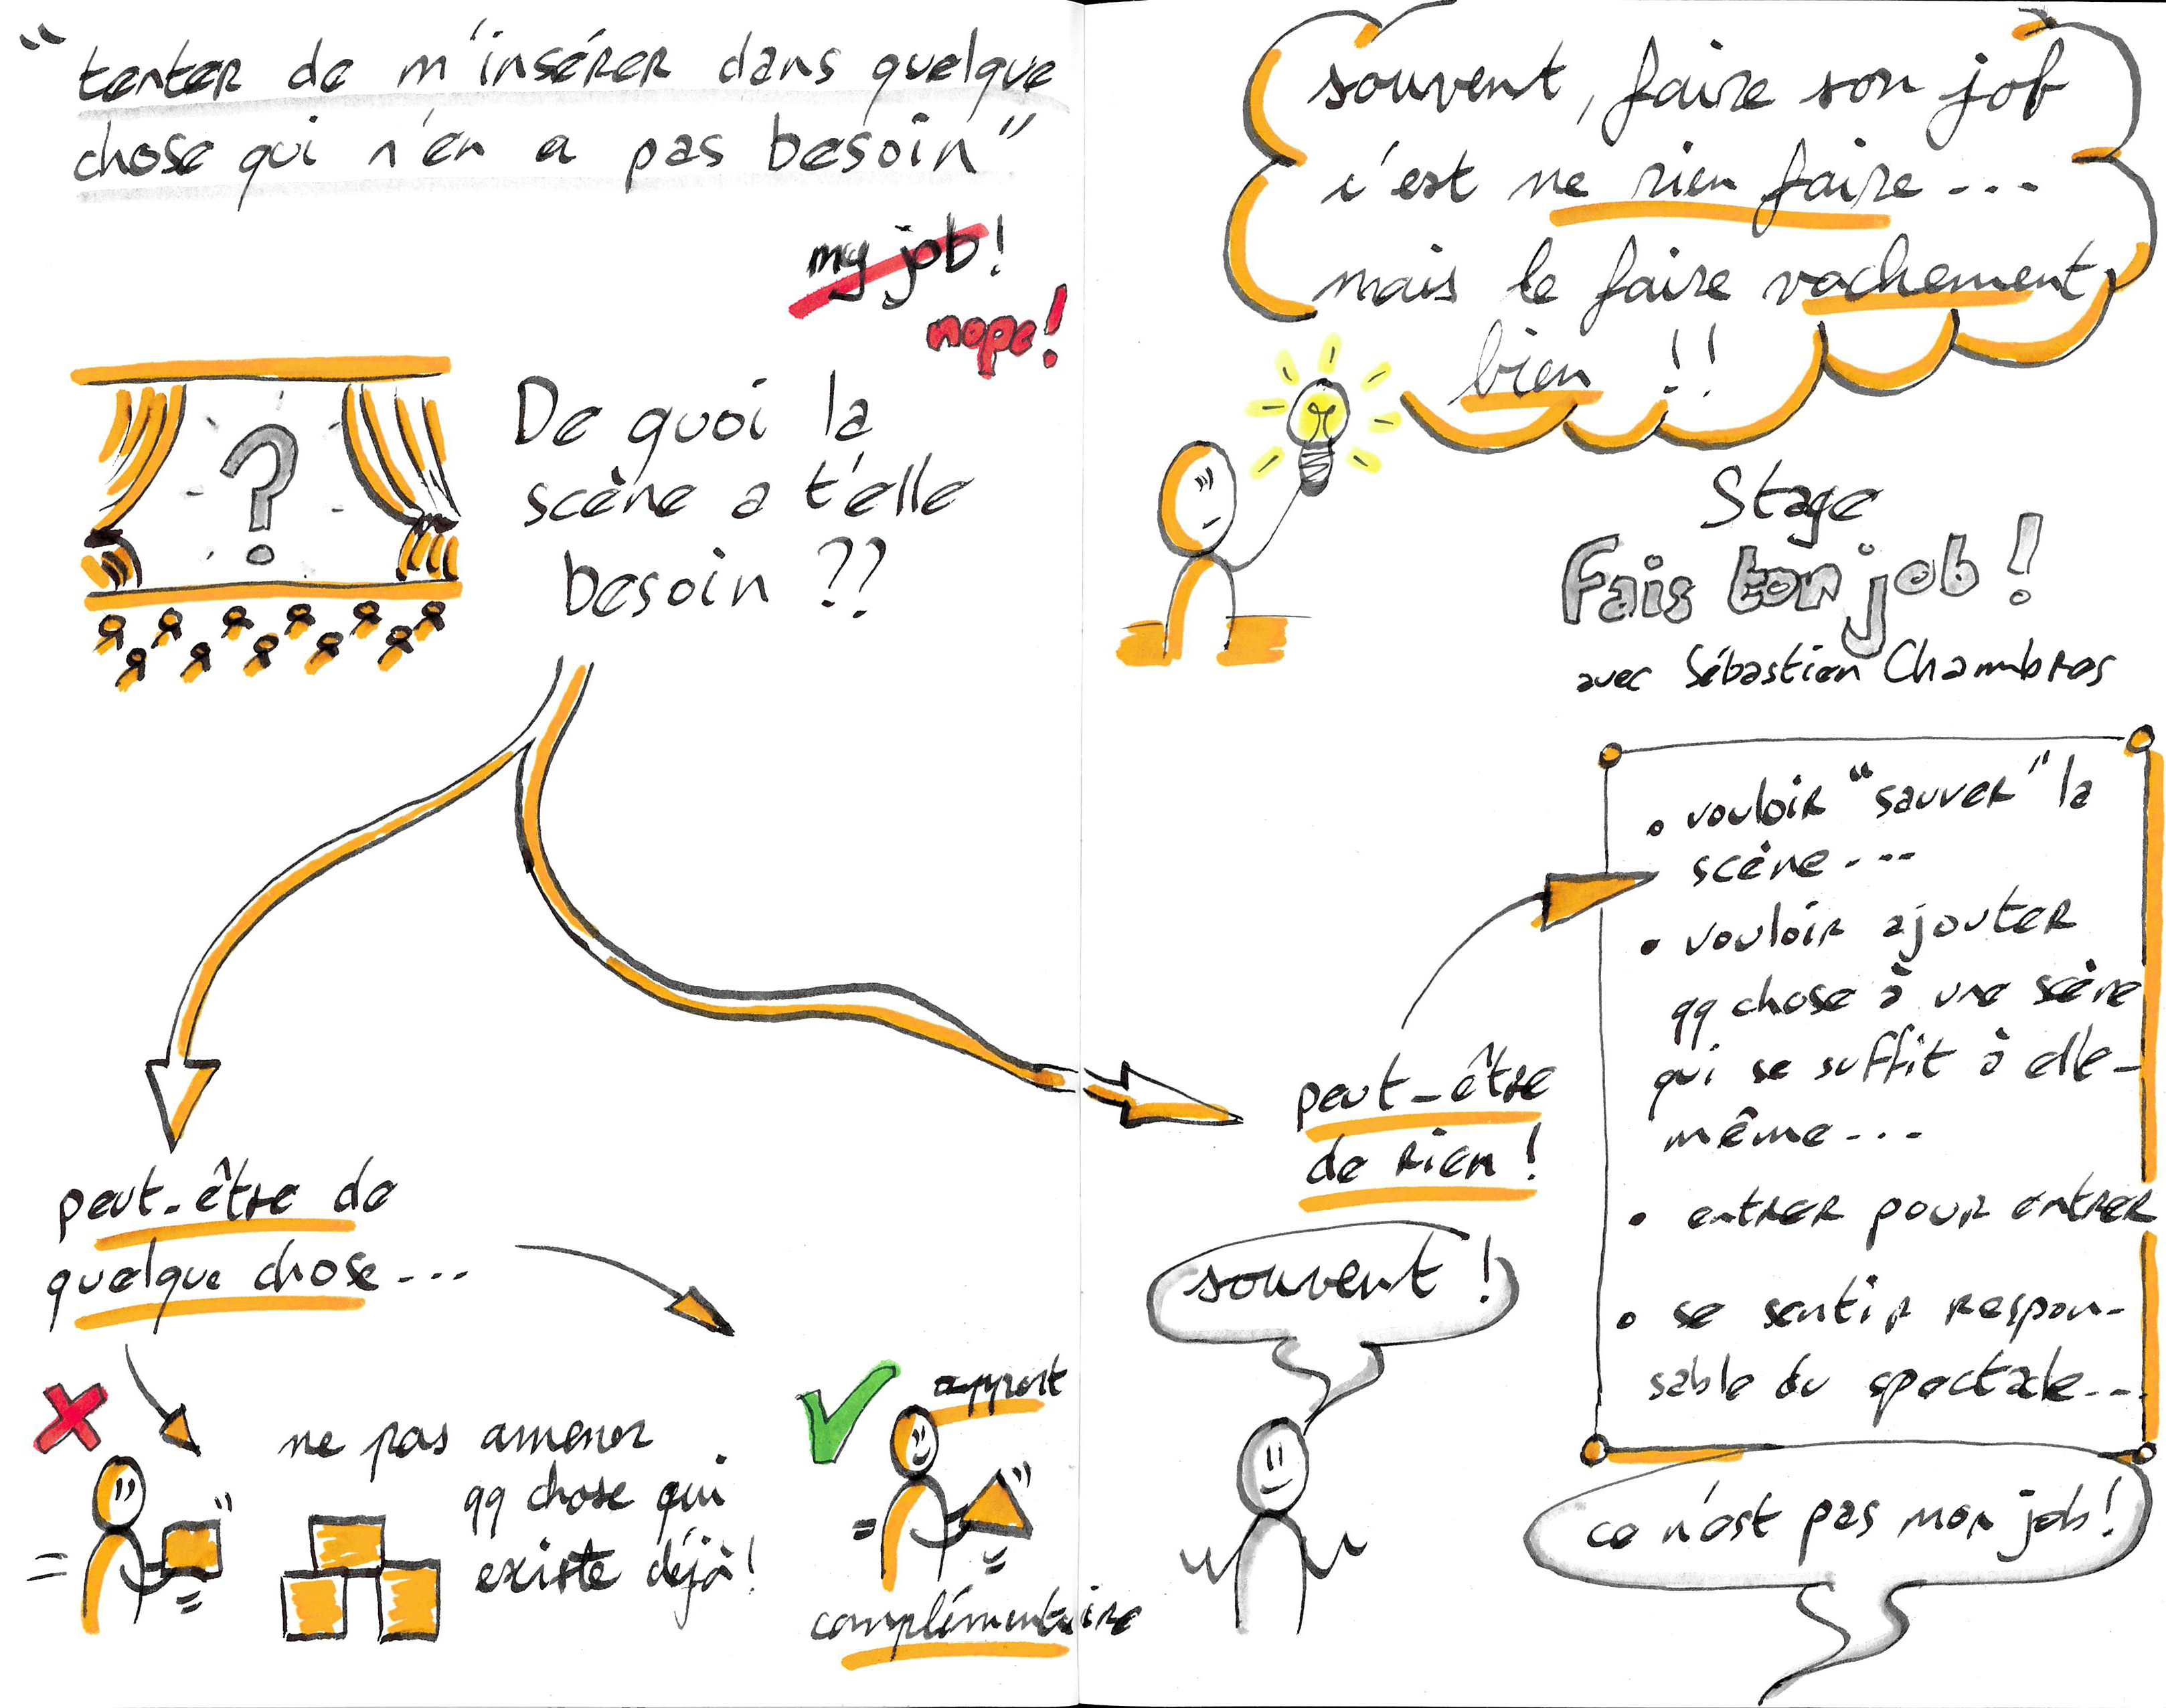 “tenter de m'insérer dans quelque
chose qui n'en a pas besoin”
my job!
nope!
De quoi la
scène a t'elle
besoin ??
peut-être de
quelque chose...
ne pas amener
qq chose qui
existe déjà!
apport
complémentaire
souvent, faire son job
c'est ne rien faire...
mais le faire vachement
bien !!
Stage
Fais ton job !
avec Sébastien Chambres
peut-être
de rien !
souvent !
• vouloir “sauver” la
scène...
• vouloir ajouter
qq chose à une scène
qui se suffit à elle-
même...
• entrer pour entrer
• se sentir respon-
sable du spectacle...
ce n'est pas mon job!